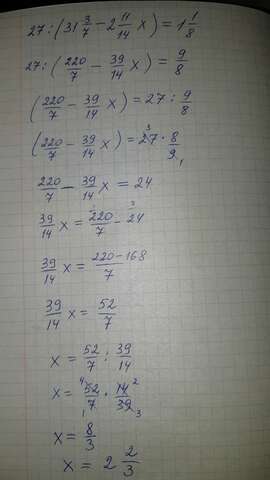 27:(31 3/7 − 2 11/14 x) = 1 1/8
27:(220/7 − 39/14 x) = 9/8
(220/7 − 39/14 x) = 27 : 9/8
(220/7 − 39/14 x) = 27 3 · 8/9 1
220/7 − 39/14 x = 24
39/14 x = 220/7 − 24
39/14 x = 220−168/7
39/14 x = 52/7
x = 52/7 : 39/14
x = 4 52/1 7 · 14 2/39 3
x = 8/3
x = 2 2/3